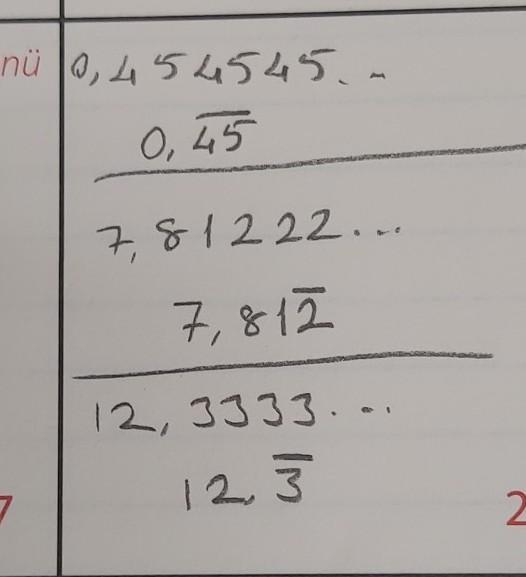 nü 0,454545...
0,4̅5̅
7,81222...
7,812̅
12,3333...
12,3̅
7
2